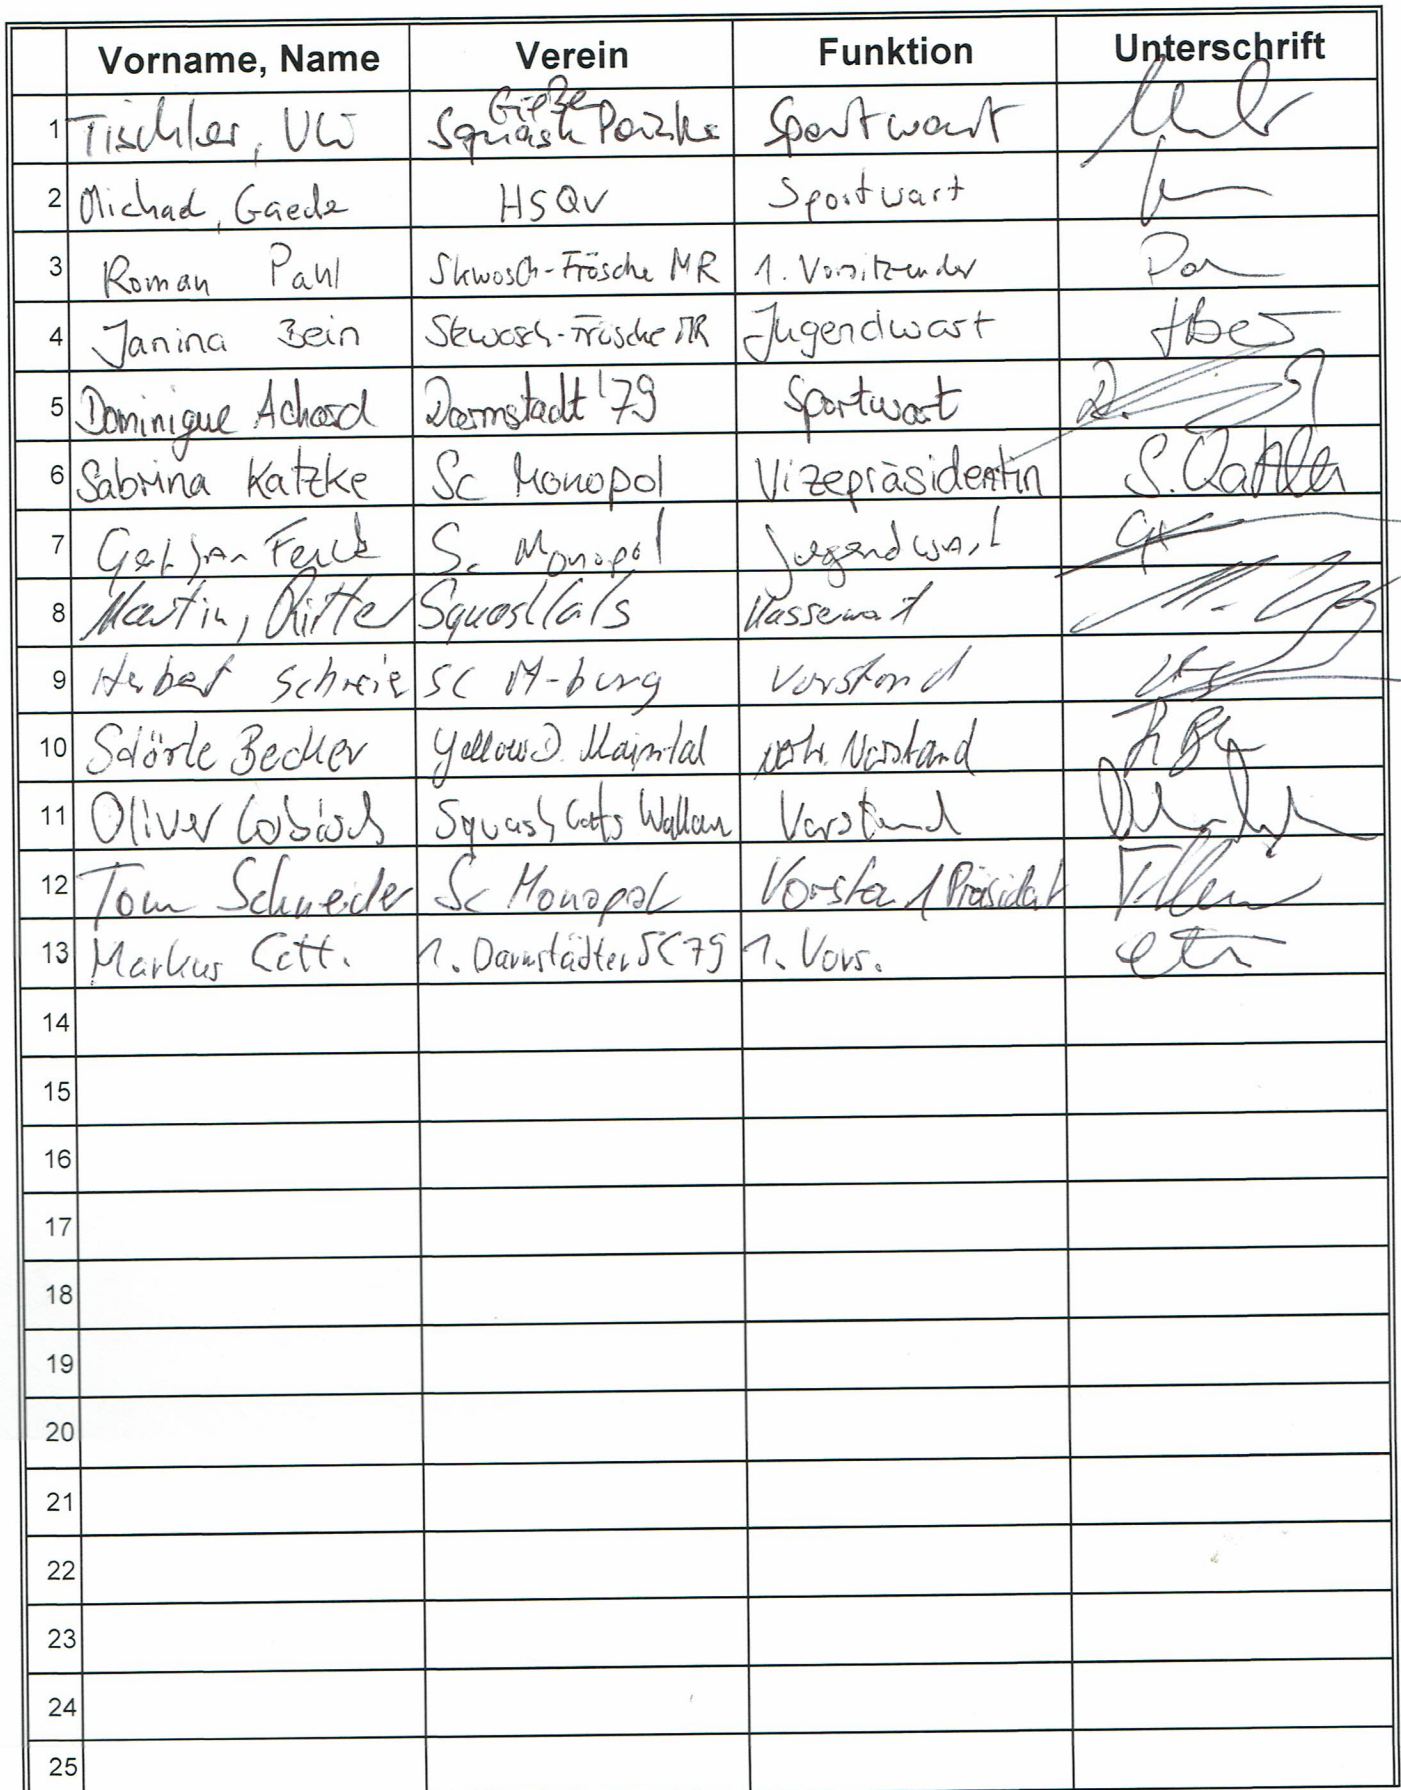 Vorname, Name Verein Funktion Unterschrift
1 Tischler, Squash Sportwart
2 Michael, Gaede HSQV Sportwart
3 Roman Pahl Skwosch-Frösche MR 1. Vorsitzender
4 Janina Bein Skwosch-Frösche MR Jugendwart
5 Dominique Achard Darmstadt '79 Sportwart
6 Sabrina Katzke Sc Monopol Vizepräsidentin S.
7 Sc Monopol Jugendwart
8 Martin, Ritter Kassenwart
9 Herbert SC M-burg Vorstand
10 Becker Yellow D. Maintal Vorstand
11 Oliver Squash Wallau Vorstand
12 Tom Schneider Sc Monopol
13 Markus 1. Darmstädter SC 79 1. Vors.
14
15
16
17
18
19
20
21
22
23
24
25